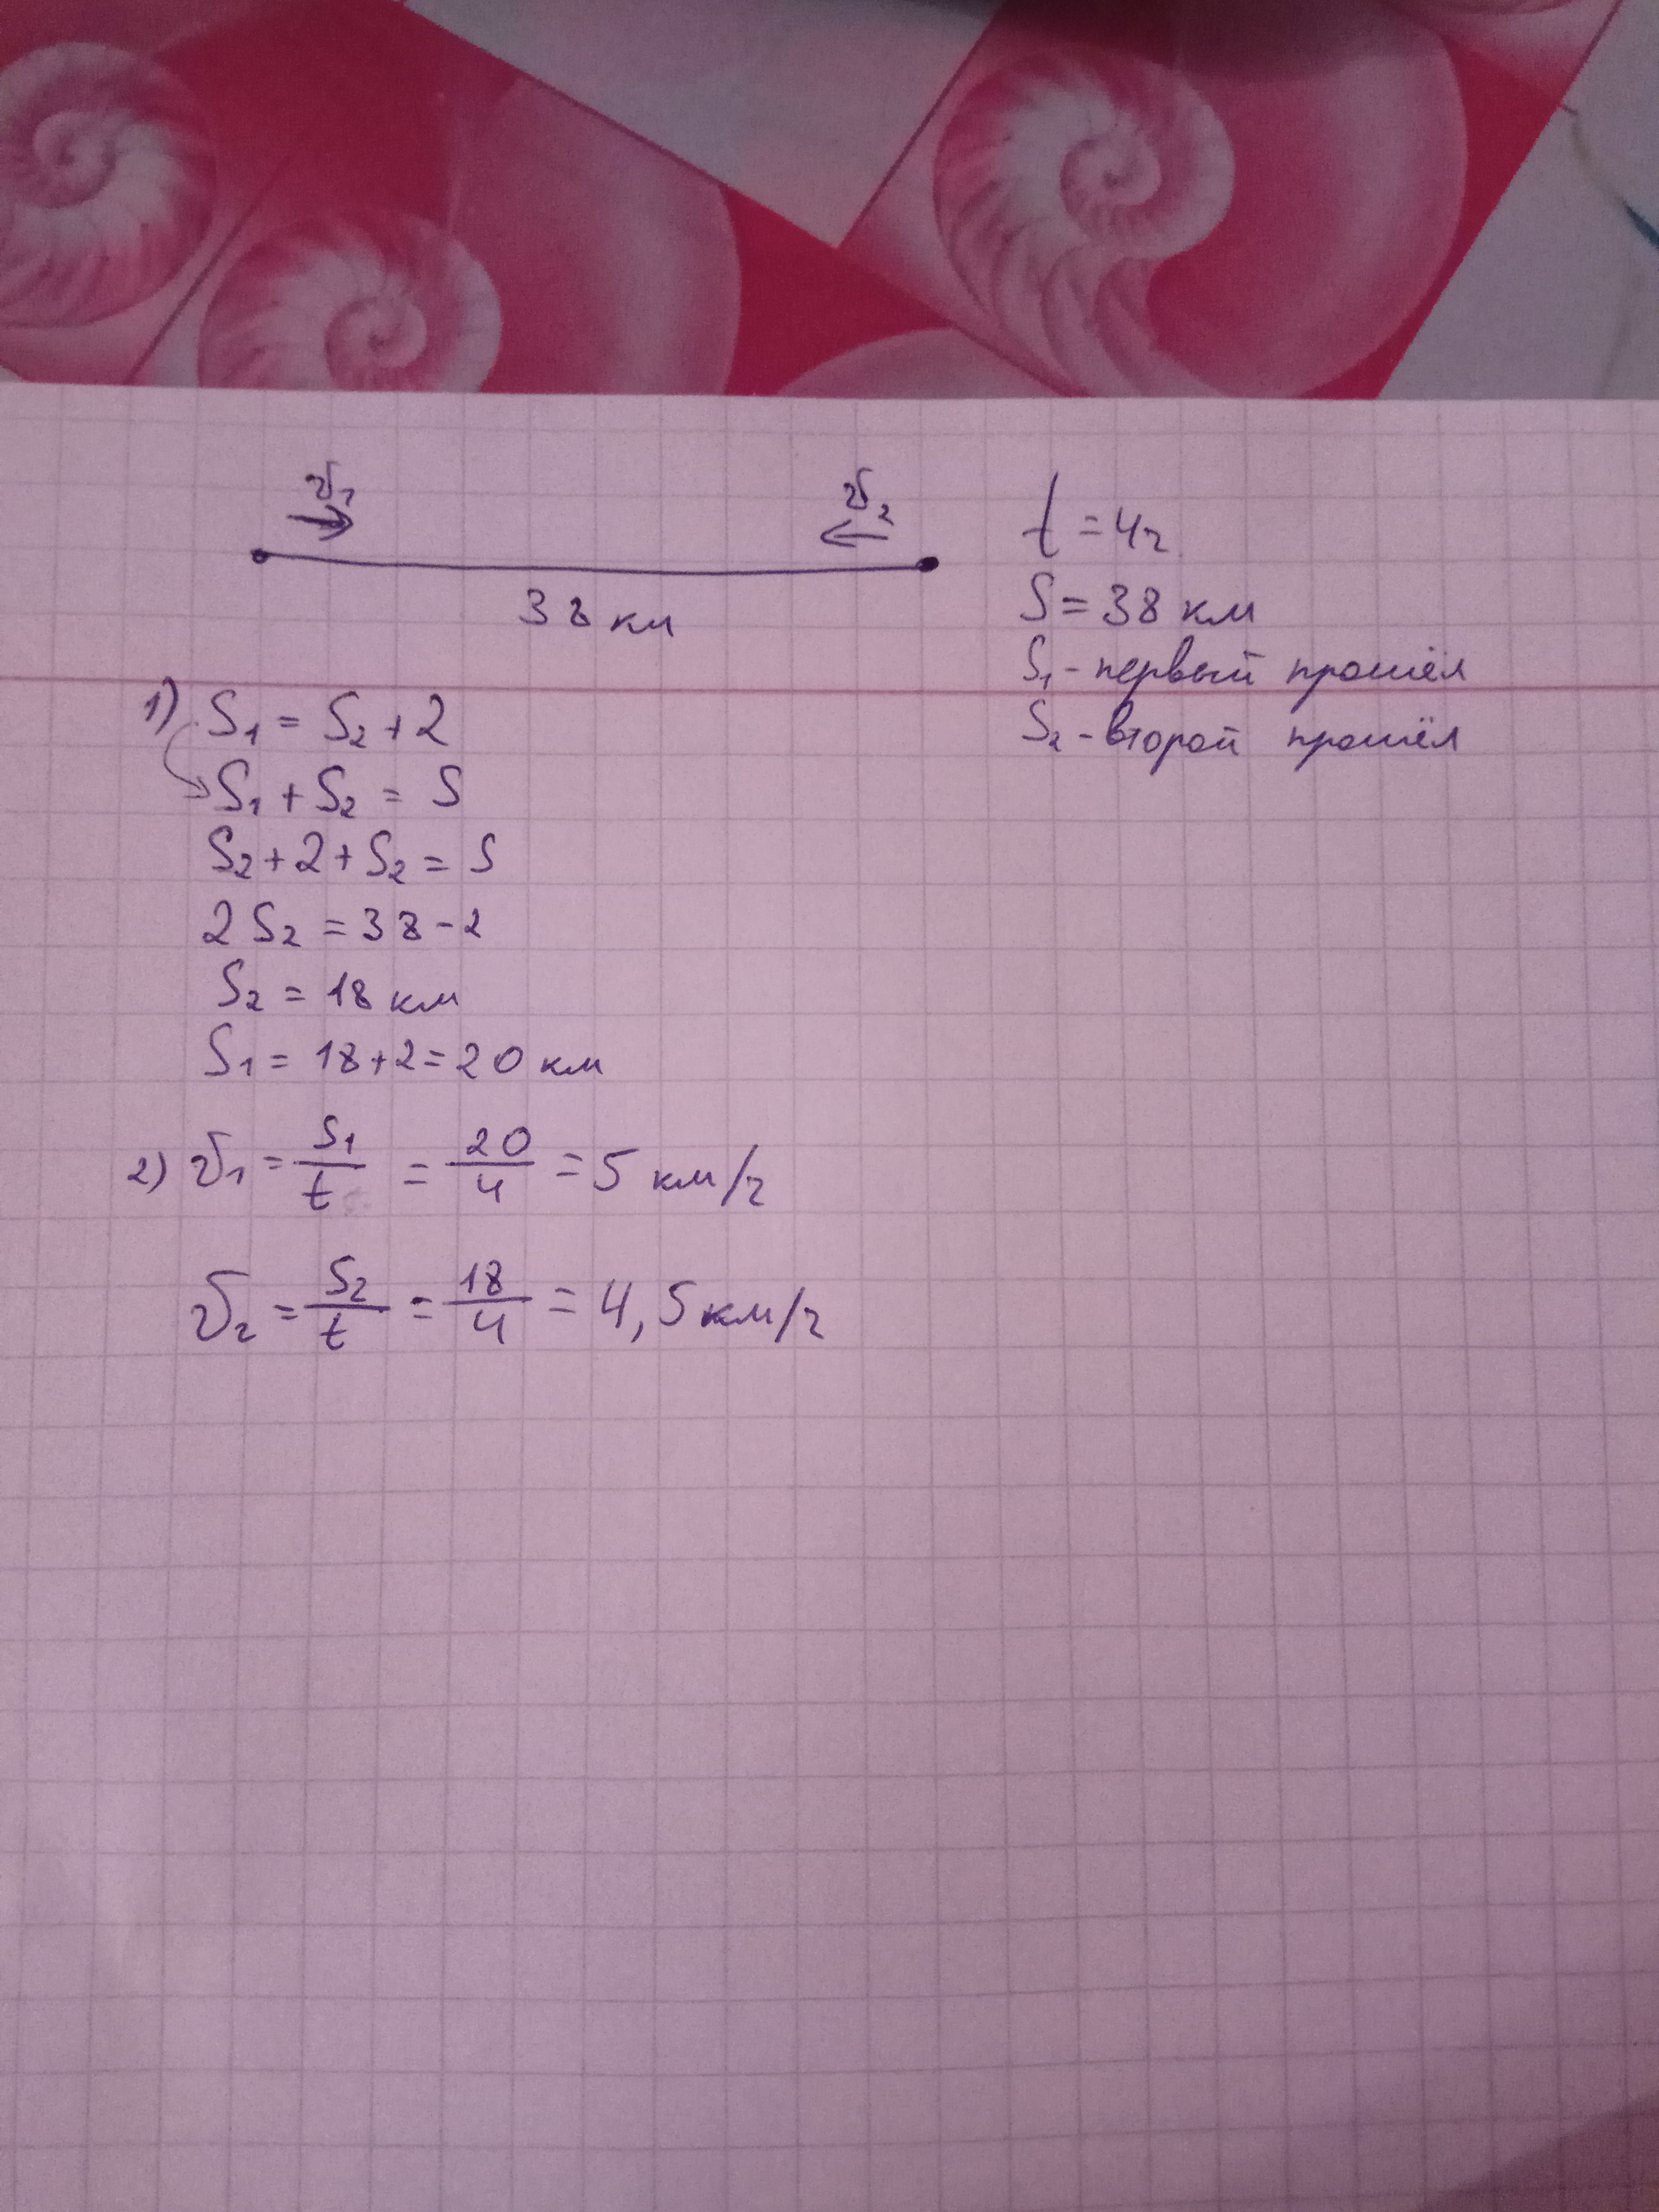 v₁ v₂
38 км
t = 4ч
S = 38 км
S₁ - первый прошёл
S₂ - второй прошёл
1) S₁ = S₂ + 2
S₁ + S₂ = S
S₂ + 2 + S₂ = S
2 S₂ = 38 - 2
S₂ = 18 км
S₁ = 18 + 2 = 20 км
2) v₁ = S₁/t = 20/4 = 5 км/ч
v₂ = S₂/t = 18/4 = 4,5 км/ч